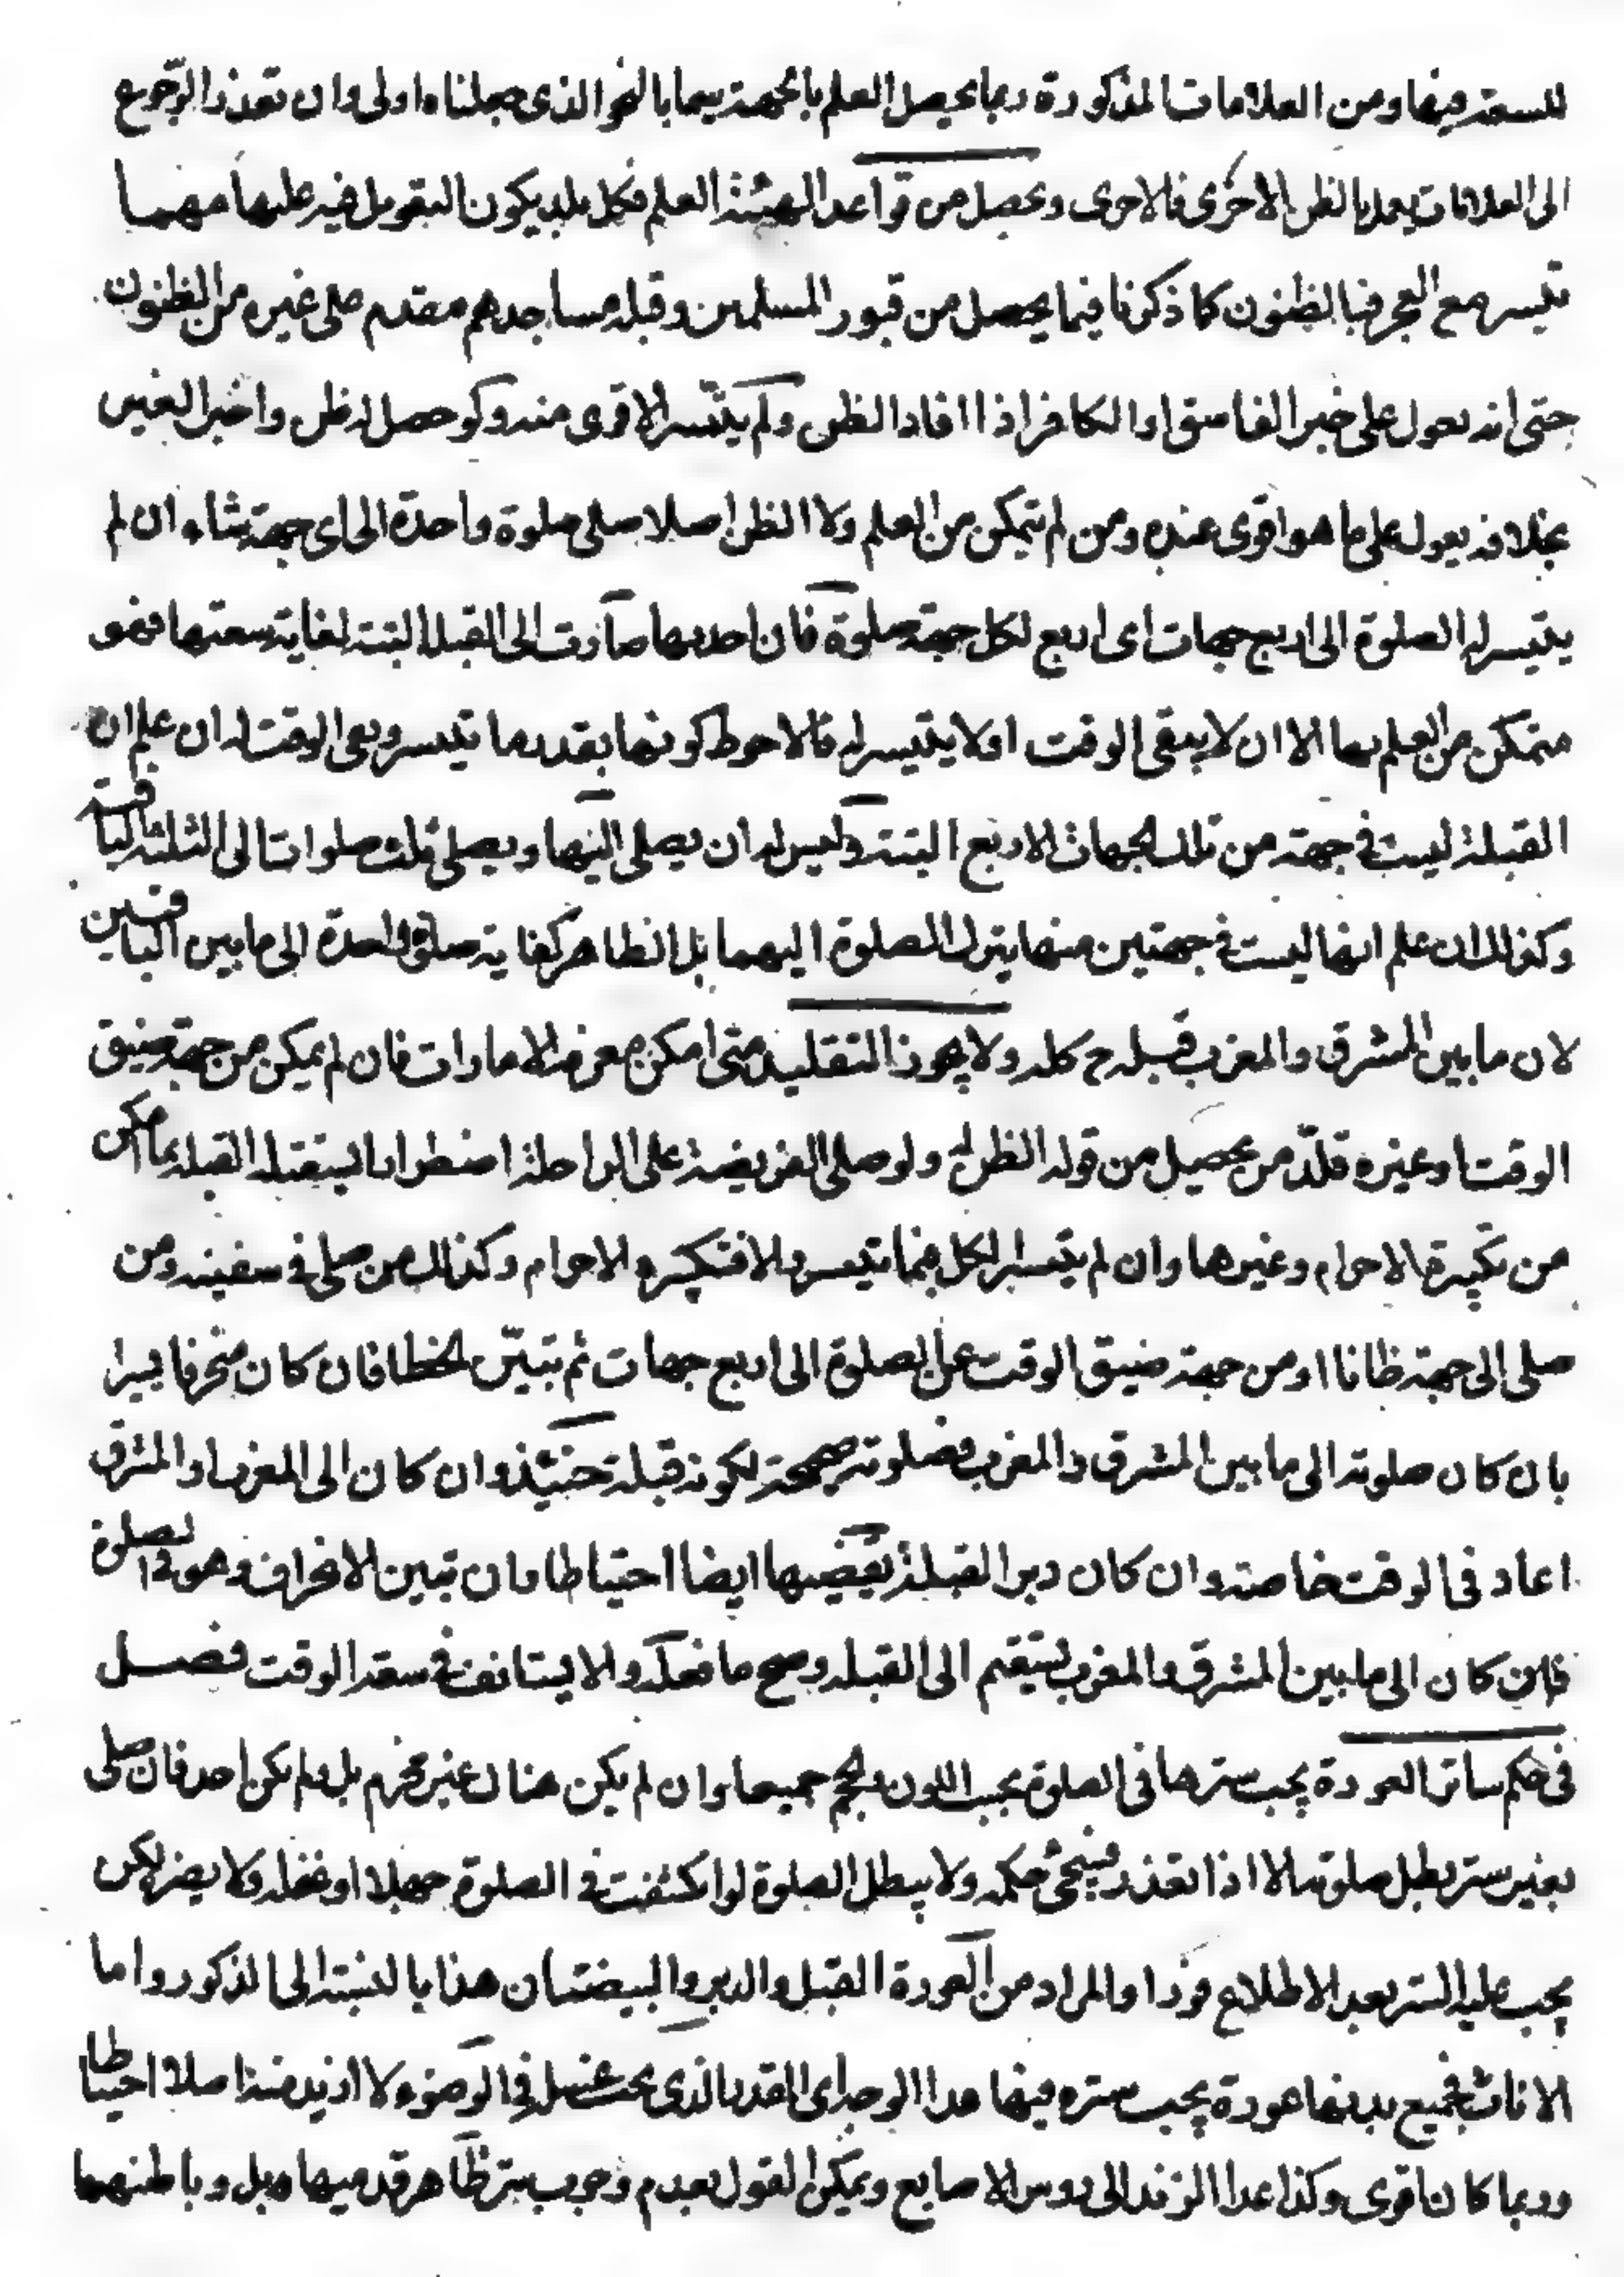 للسعة فيها ومن العلامات المذكورة ربما يحصل العلم بالجهة سيما بالنحو الذي جعلناه اولى وان تعذر الرجوع
الى العلامات يعمل بالظن الاحرى فالاحرى ويحصل من قواعد الهيئة العلم فكل بلد يكون التقويل فيه عليها مهما
تيسر مع العجز فبالظنون كما ذكرنا فيما يحصل من قبور المسلمين وقبلة مساجدهم مقدم على غيره من الظنون
حتى انه يعول على خبر الفاسق او الكافر اذا افاد الظن ولم يتيسر الاقوى منه ولو حصل له ظن واخبر الغير
بخلافه يعول على ما هو اقوى عنده ومن لم يتمكن من العلم ولا الظن اصلا صلى صلوة واحدة الى اى جهة شاء ان لم
يتيسر له الصلوة الى اربع جهات اى اربع لكل جهة صلوة فان احديها صارت الى القبلة البتة لغاية سعتها فهو
متمكن من العلم بها الا ان لا يبقى الوقت او لا يتيسر له فالاحوط كونها بقدر ما تيسر وبقى الوقت له ان علم ان
القبلة ليست في جهة من تلك الجهات الاربع البتة وليس له ان يصلى اليها ويصلى ثلث صلوات الى الثلثة الباقية
وكذلك ان علم انها ليست في جهتين منها يترك الصلوة اليهما بل الظاهر كفاية صلوة واحدة الى ما بين الباقيين
لان ما بين المشرق والمغرب قبلة ح كله ولا يجوز التقليد متى امكن معرفة الامارات فان لم يمكن من جهة ضيق
الوقت او غيره قلّد من يحصل من قوله الظن له ولو صلى الفريضة على الراحلة اضطرارا ليستقبل القبلة بما امكن
من تكبيرة الاحرام وغيرها وان لم يتيسر الكل فبما تيسر والا فتكبيرة الاحرام وكذلك من صلى في سفينة ومن
صلى الى جهة ظانا او من جهة ضيق الوقت عن الصلوة الى اربع جهات ثم تبيّن الخطا فان كان منحرفا يسيرا
بان كان صلوته الى ما بين المشرق والمغرب فصلوته صحيحة لكونه قبلة حينئذ وان كان الى المغرب او المشرق
اعاد في الوقت خاصة وان كان دبر القبلة يقضيها ايضا احتياطا وان تبين الانحراف وهو في الصلوة
فان كان الى ما بين المشرق والمغرب يستقيم الى القبلة وصح ما فعله والا يستانف في سعة الوقت فصل
في حكم ساتر العورة يجب سترها في الصلوة بحسب اللون والحجم جميعا وان لم يكن هناك غير محرم بل ولم يكن احد فان صلى
بغير ستر بطل صلوته الا اذا تعذر فسيجئ حكمه ولا يبطل الصلوة لو انكشفت في الصلوة جهلا او غفلة ولا يضر لكن
يجب عليه الستر بعد الاطلاع فورا والمراد من العورة القبل والدبر والبيضتان هذا بالنسبة الى الذكور واما
الاناث فجميع بدنها عورة يجب ستره فيها عدا الوجه اى القدر الذي يجب غسله في الوضوء لا ازيد منه اصلا احتياطا
وربما كان اقوى وكذا عدا الزند الى رؤس الاصابع ويمكن القول بعدم وجوب ستر ظاهر قدميها بل وباطنهما